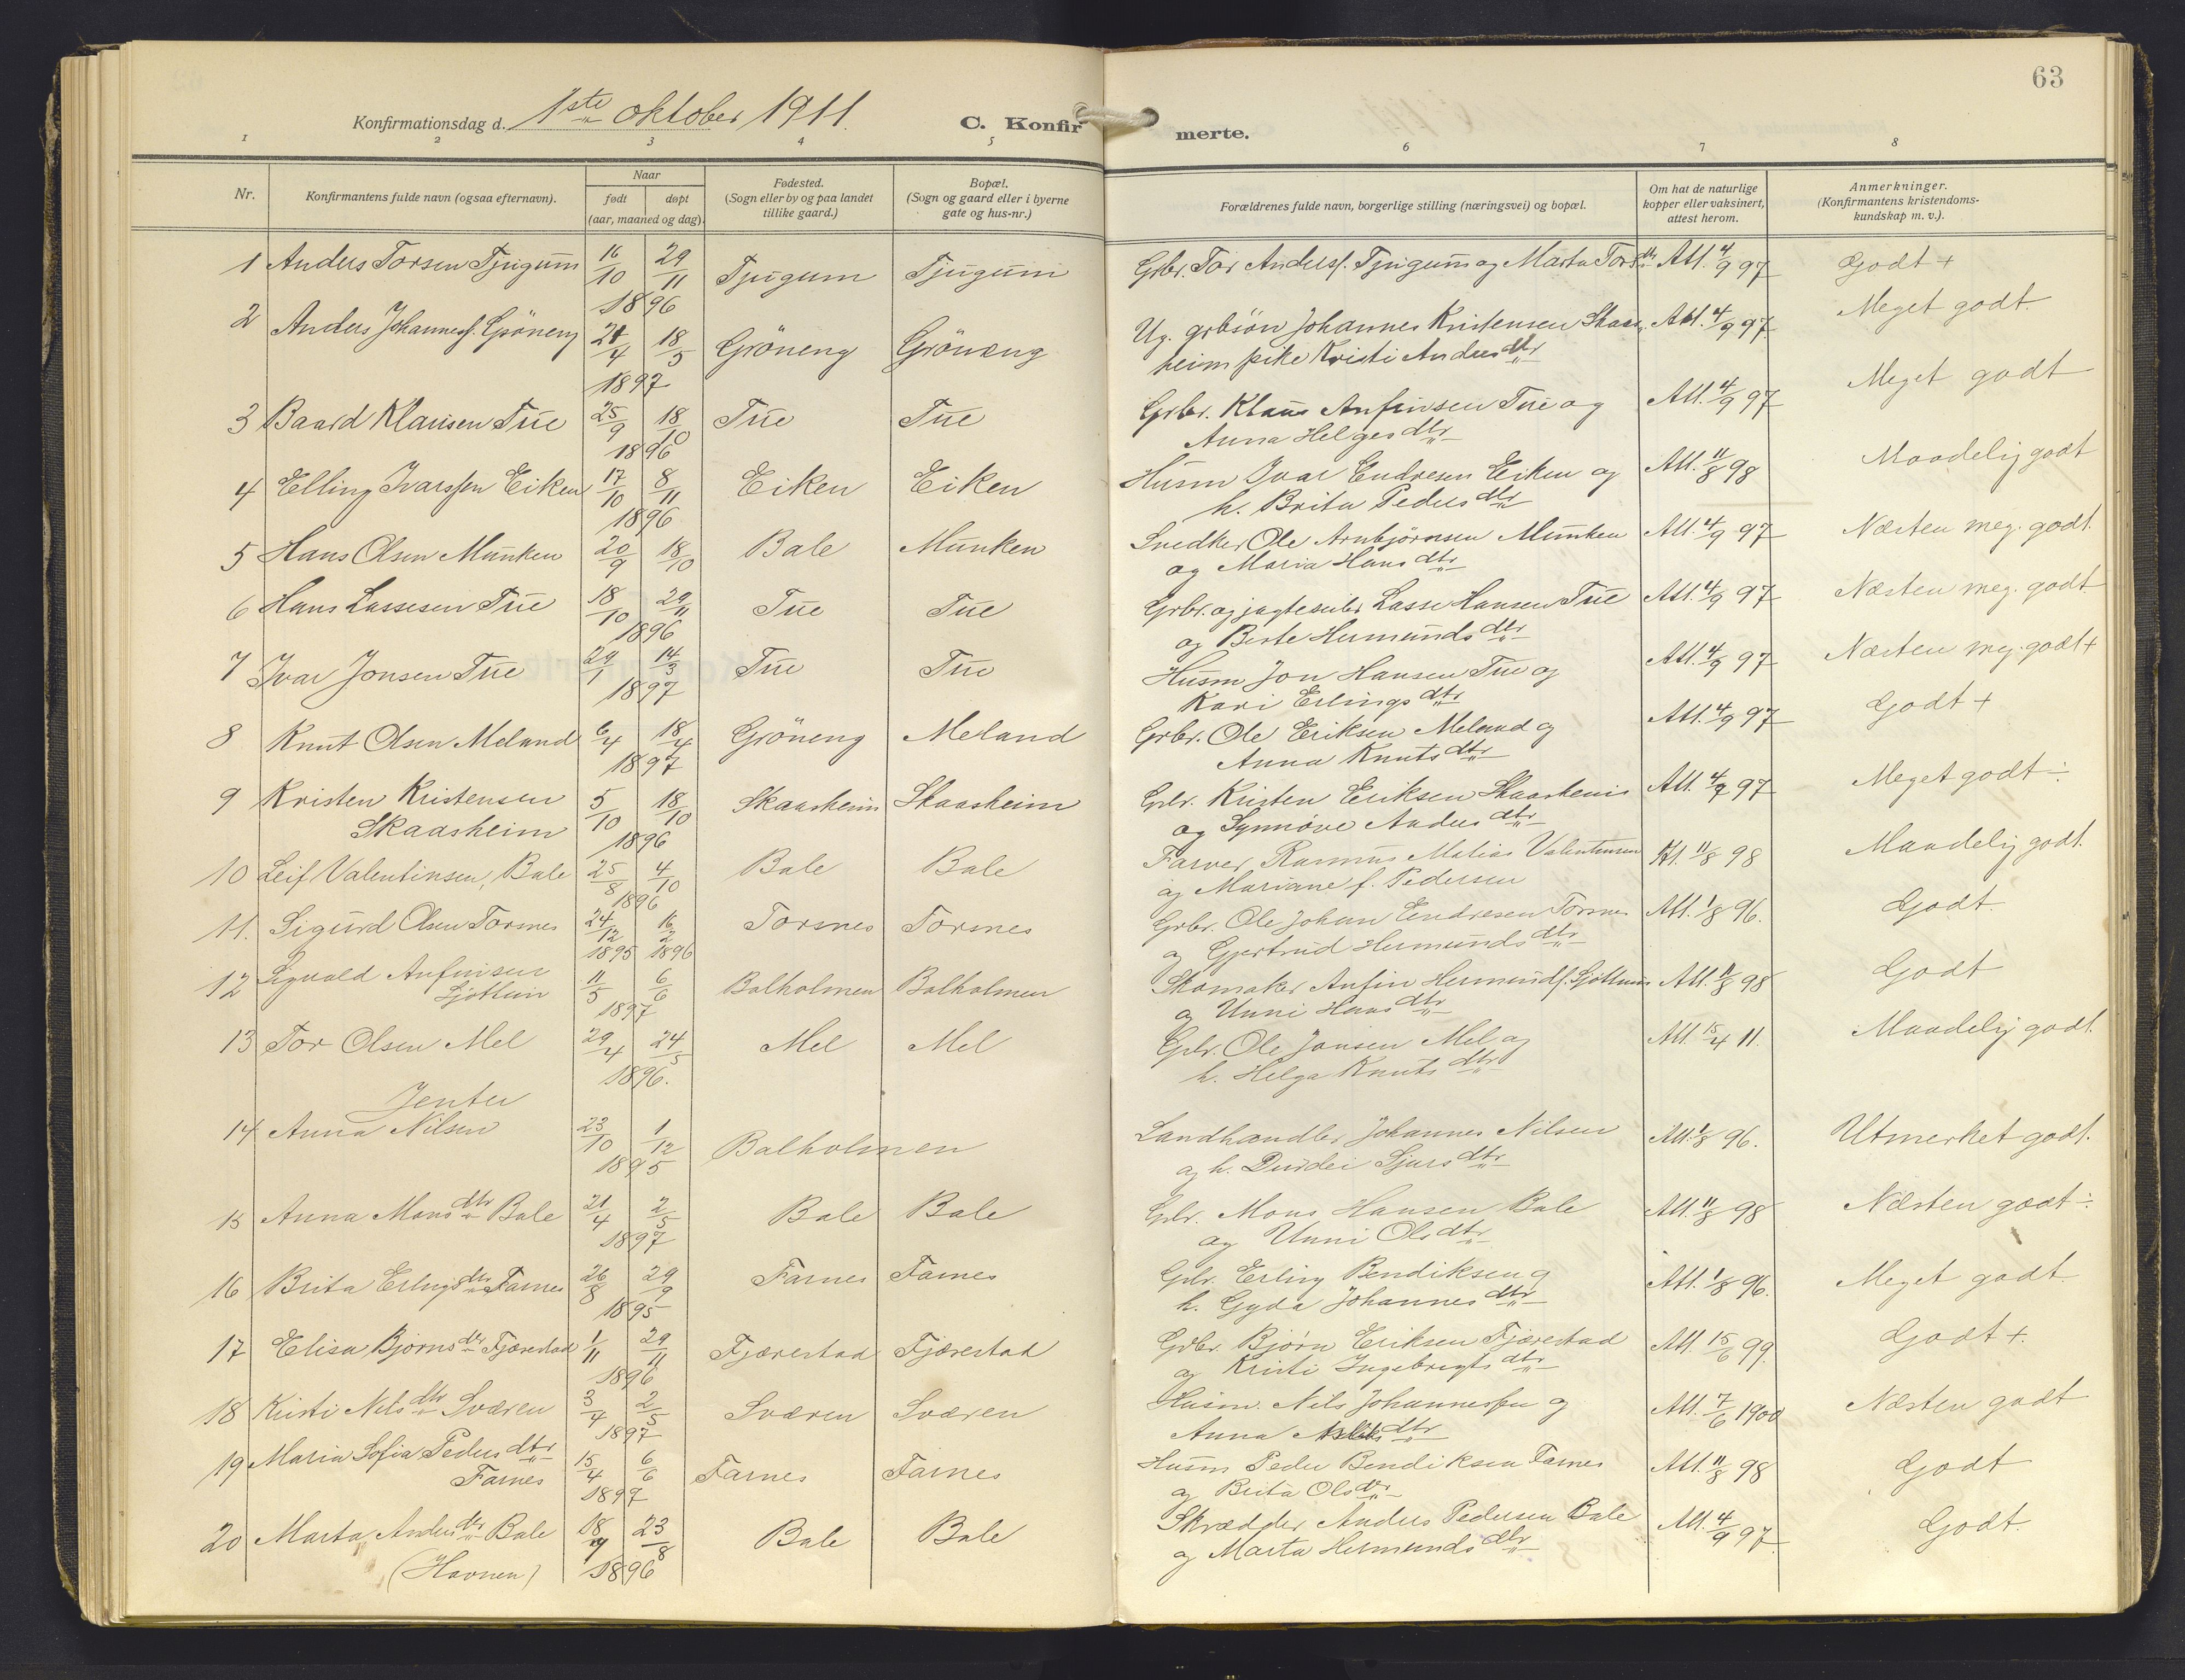 63
Konfirmationsdag d. 1ste oktober 1911.
C. Konfirmerte.
1 2 3 4 5 6 7 8
Nr.
Konfirmantens fulde navn (ogsaa efternavn).
Naar
født døpt
(aar, maaned og dag).
Fødested.
(Sogn eller by og paa landet
tillike gaard.)
Bopæl.
(Sogn og gaard eller i byerne
gate og hus-nr.)
Forældrenes fulde navn, borgerlige stilling (næringsvei) og bopæl.
Om hat de naturlige
kopper eller vaksinert,
attest herom.
Anmerkninger.
(Konfirmantens kristendoms-
kundskap m. v.).
1 Anders Torsen Tjugum 16/10 29/11 1896 Tjugum Tjugum Grbr. Tor Anderss. Tjugum og Marta Torsdtr Att. 4/9 97 Godt +
2 Anders Johanness. Gröneng 21/4 18/5 1897 Gröneng Gröneng Ug. grbsön Johannes Kristensen Skaas-
heim pike Kristi Andersdtr Att. 4/9 97 Meget godt.
3 Baard Klausen Tue 25/9 18/10 1896 Tue Tue Grbr. Klaus Anfinsen Tue og
Anna Helgesdtr Att. 4/9 97 Meget godt
4 Elling Ivarssen Eiken 17/10 8/11 1896 Eiken Eiken Husm Ivar Endresen Eiken og
h. Brita Pedersdtr Att. 11/8 98 Maadelig godt
5 Hans Olsen Munken 20/9 18/10 Bale Munken Snedker Ole Arnbjörnsen Munken
og Maria Hansdtr Att. 4/9 97 Næsten meg. godt.
6 Hans Lassesen Tue 18/10 29/11 1896 Tue Tue Grbr. og jagteseiler Lasse Hansen Tue
og Berte Hermundsdtr Att. 4/9 97 Næsten meg. godt
7 Ivar Jonsen Tue 29/1 14/3 1897 Tue Tue Husm Jon Hansen Tue og
Kari Erlingsdtr Att. 4/9 97 Næsten meg. godt +
8 Knut Olsen Meland 6/4 18/4 1897 Gröneng Meland Grbr. Ole Eriksen Meland og
Anna Knutsdtr Att. 4/9 97 Godt +
9 Kristen Kristensen
Skaasheim 5/10 18/10 1896 Skaasheim Skaasheim Grbr. Kristen Eriksen Skaasheim
og Synnöve Andersdtr Att. 4/9 97 Meget godt ÷
10 Leif Valentinsen, Bale 25/8 4/10 1896 Bale Bale Farver Rasmus Matias Valentinsen
og Mariane f. Pedersen Att. 11/8 98 Maadelig godt.
11. Sigurd Olsen Torsnes 24/12 1895 16/2 1896 Torsnes Torsnes Grbr. Ole Johan Endresen Torsnes
og Gjertrud Hermundsdtr Att. 1/8 96. Godt.
12 Sigvald Anfinsen
Sjöthun 11/5 6/6 1897 Balholmen Balholmen Skomaker Anfin Hermunds. Sjöthun
og Unni Hansdtr Att. 11/8 98 Godt
13 Tor Olsen Mel 29/4 24/5 1896. Mel Mel Grbr. Ole Jonsen Mel og
h. Helga Knutsdtr Att. 15/4 11. Maadelig godt.
Jenter
14 Anna Nilsen 23/10 1/12 1895 Balholmen Landhandler Johannes Nilsen
og h. Durdei Sjursdtr Att. 1/8 96. Utmerket godt.
15 Anna Monsdtr Bale 21/4 2/5 1897 Bale Bale Grbr. Mons Hansen Bale
og Unni Olsdtr Att. 11/8 98 Næsten godt ÷
16 Brita Erlingsdtr Farnes 26/8 29/9 1895 Farnes Farnes Grbr. Erling Bendiksen og
h. Gyda Johannesdtr Att. 1/8 96. Meget godt.
17 Elisa Bjørnsdtr Fjærestad 1/11 29/11 1896 Fjærestad Fjærestad Grbr. Bjørn Eriksen Fjærestad
og Kristi Ingebrigtsdtr Att. 15/6 99. Godt +.
18 Kristi Nilsdtr Sværen 3/4 2/5 1897 Sværen Sværen Husm. Nils Johannessen og
Anna dtr Att. 7/6 1900 Næsten godt
19 Maria Sofia Pedersdtr
Farnes 15/4 6/6 1897 Farnes Farnes Husm Peder Bendiksen Farnes
og Brita Olsdtr Att. 11/8 98 Godt
20 Marta Andersdtr Bale
(Havnen) 18/7 23/8 1896 Bale Bale Skrædder Anders Pedersen Bale
og Marta Hermundsdtr Att. 4/9 97. Godt.